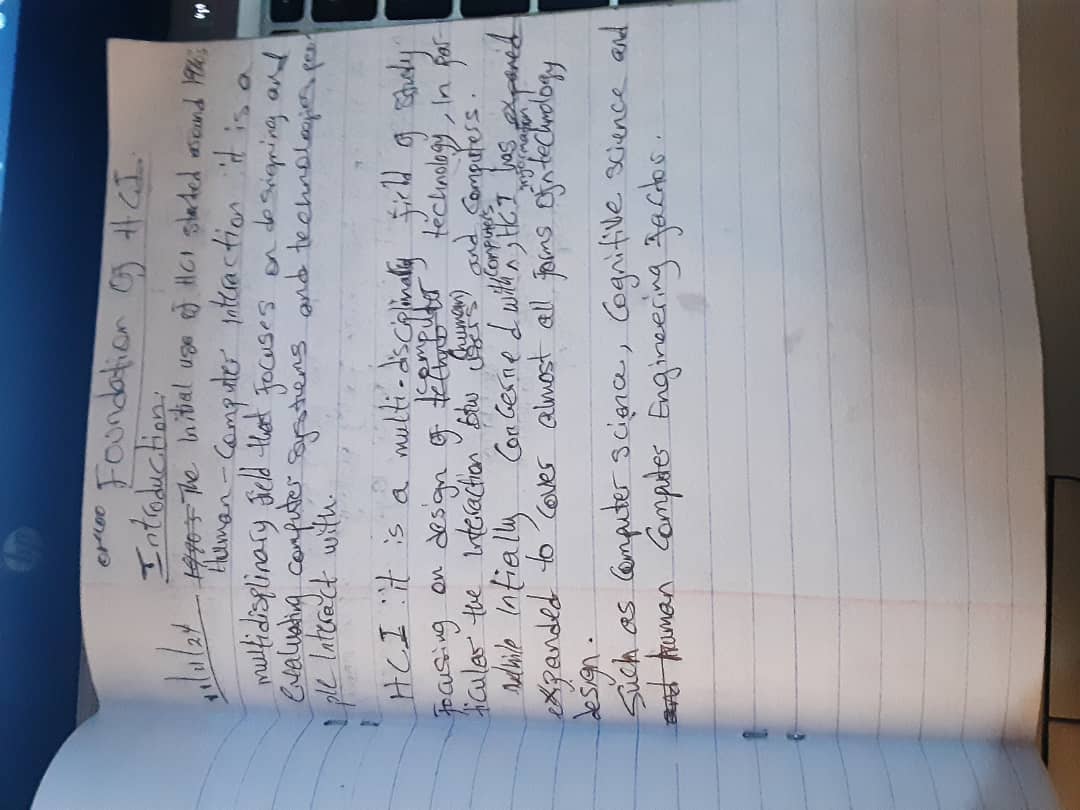 Foundation of HCI.
Introduction.
11/11/24 1990's The Initial use of HCI started around
Human-Computer Interaction it is a
multidisplinary field that focuses on designing and
Evaluating computer systems and technologies peo-
ple Interact with.
HCI : it is a multi-disciplinary field of study
focusing on design of computer technology, In par-
ticular the Interaction btw users (human) and Computers.
while Intially Concerned with computers, HCI has expaned
expanded to cover almost all forms of information technology
design.
Such as Computer science, Cognitive science and
and human Computer Engineering factos.